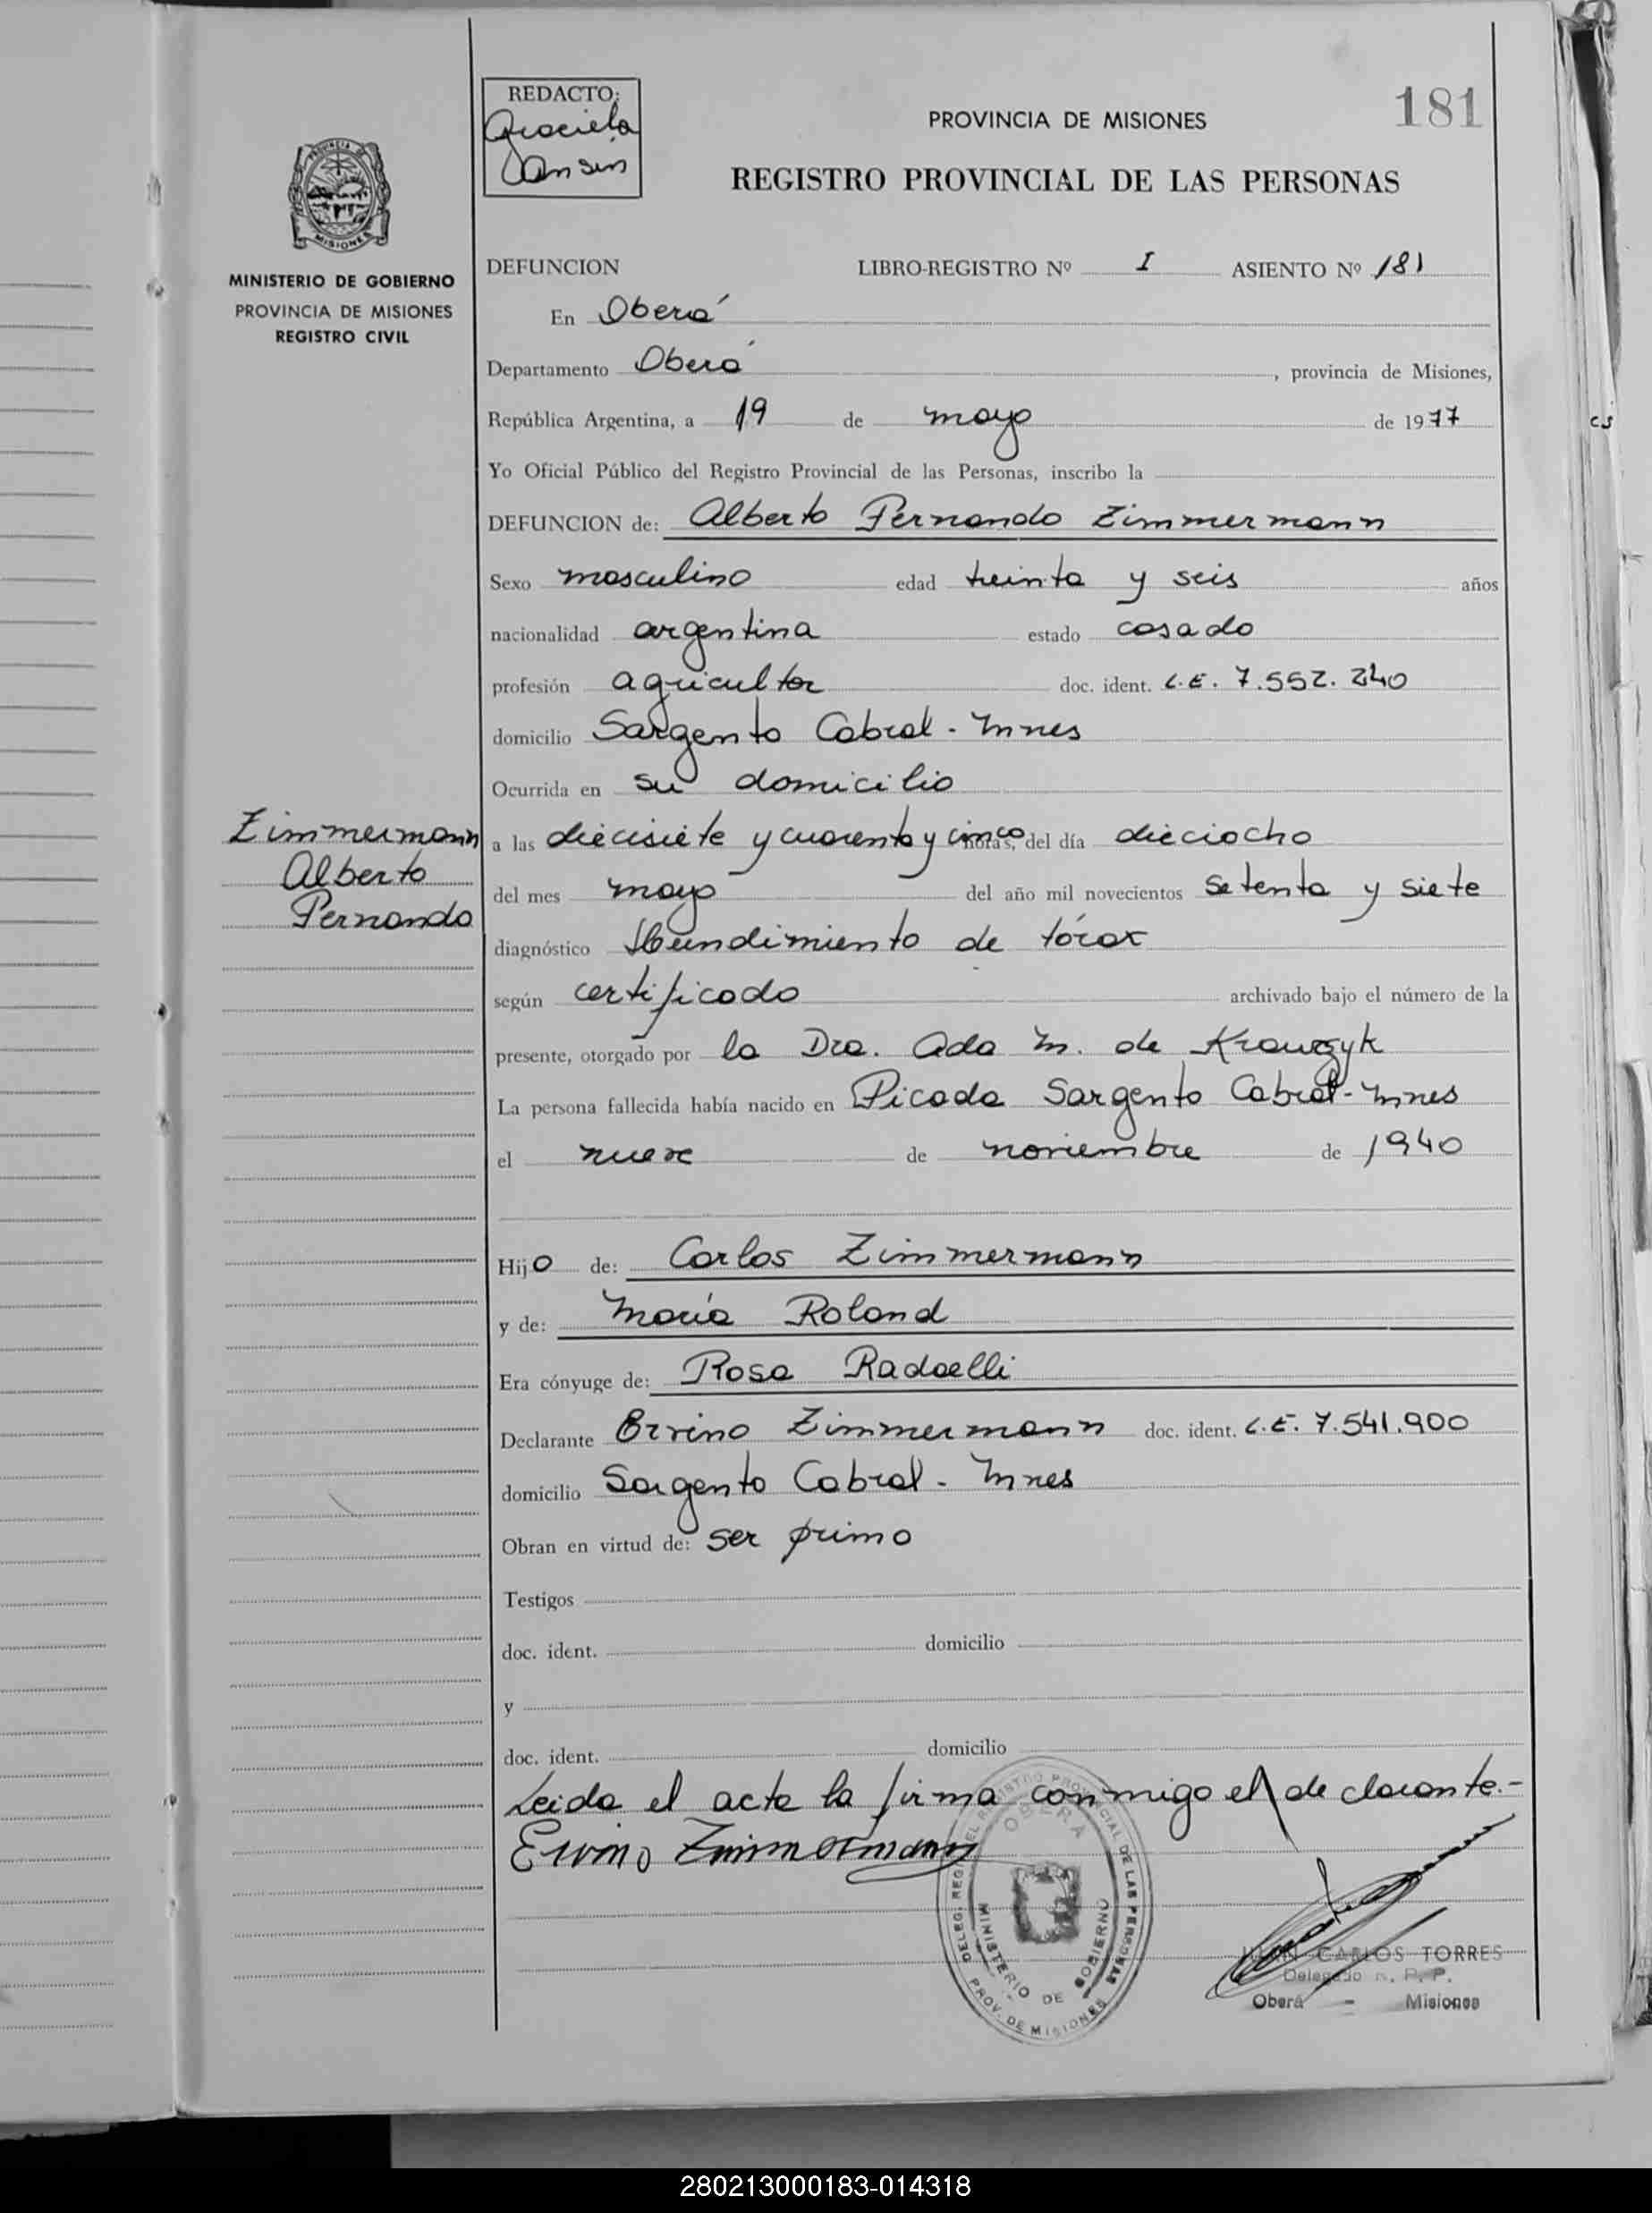 REDACTO:
Graciela
Cansin
PROVINCIA DE MISIONES
181
REGISTRO PROVINCIAL DE LAS PERSONAS
PROVINCIA DE
MISIONES
MINISTERIO DE GOBIERNO
PROVINCIA DE MISIONES
REGISTRO CIVIL
DEFUNCION LIBRO-REGISTRO Nº I ASIENTO Nº 181
En Oberá
Departamento Oberá, provincia de Misiones,
República Argentina, a 19 de mayo de 1977
Yo Oficial Público del Registro Provincial de las Personas, inscribo la
DEFUNCION de: Alberto Fernando Zimmermann
Sexo masculino edad treinta y seis años
nacionalidad argentina estado casado
profesión agricultor doc. ident. L.E. 7.552.240
domicilio Sargento Cabral - Mnes
Ocurrida en su domicilio
Zimmermann
Alberto
Fernando
a las diecisiete y cuarenta y cinco horas, del día dieciocho
del mes mayo del año mil novecientos setenta y siete
diagnóstico Hundimiento de tórax
según certificado archivado bajo el número de la
presente, otorgado por la Dra. Ada M. de Krawczyk
La persona fallecida había nacido en Picada Sargento Cabral - Mnes
el nueve de noviembre de 1940
Hijo de: Carlos Zimmermann
y de: María Roland
Era cónyuge de: Rosa Radaelli
Declarante Ervino Zimmermann doc. ident. L.E. 7.541.900
domicilio Sargento Cabral - Mnes
Obran en virtud de: ser primo
Testigos
doc. ident. domicilio
y
doc. ident. domicilio
Leida el acta la firma conmigo el declarante.-
Ervino Zimmermann
OBERA
MINISTERIO DE GOBIERNO
PROV. DE MISIONES
JUAN CARLOS TORRES
Delegado R. P. P.
Oberá - Misiones
280213000183-014318